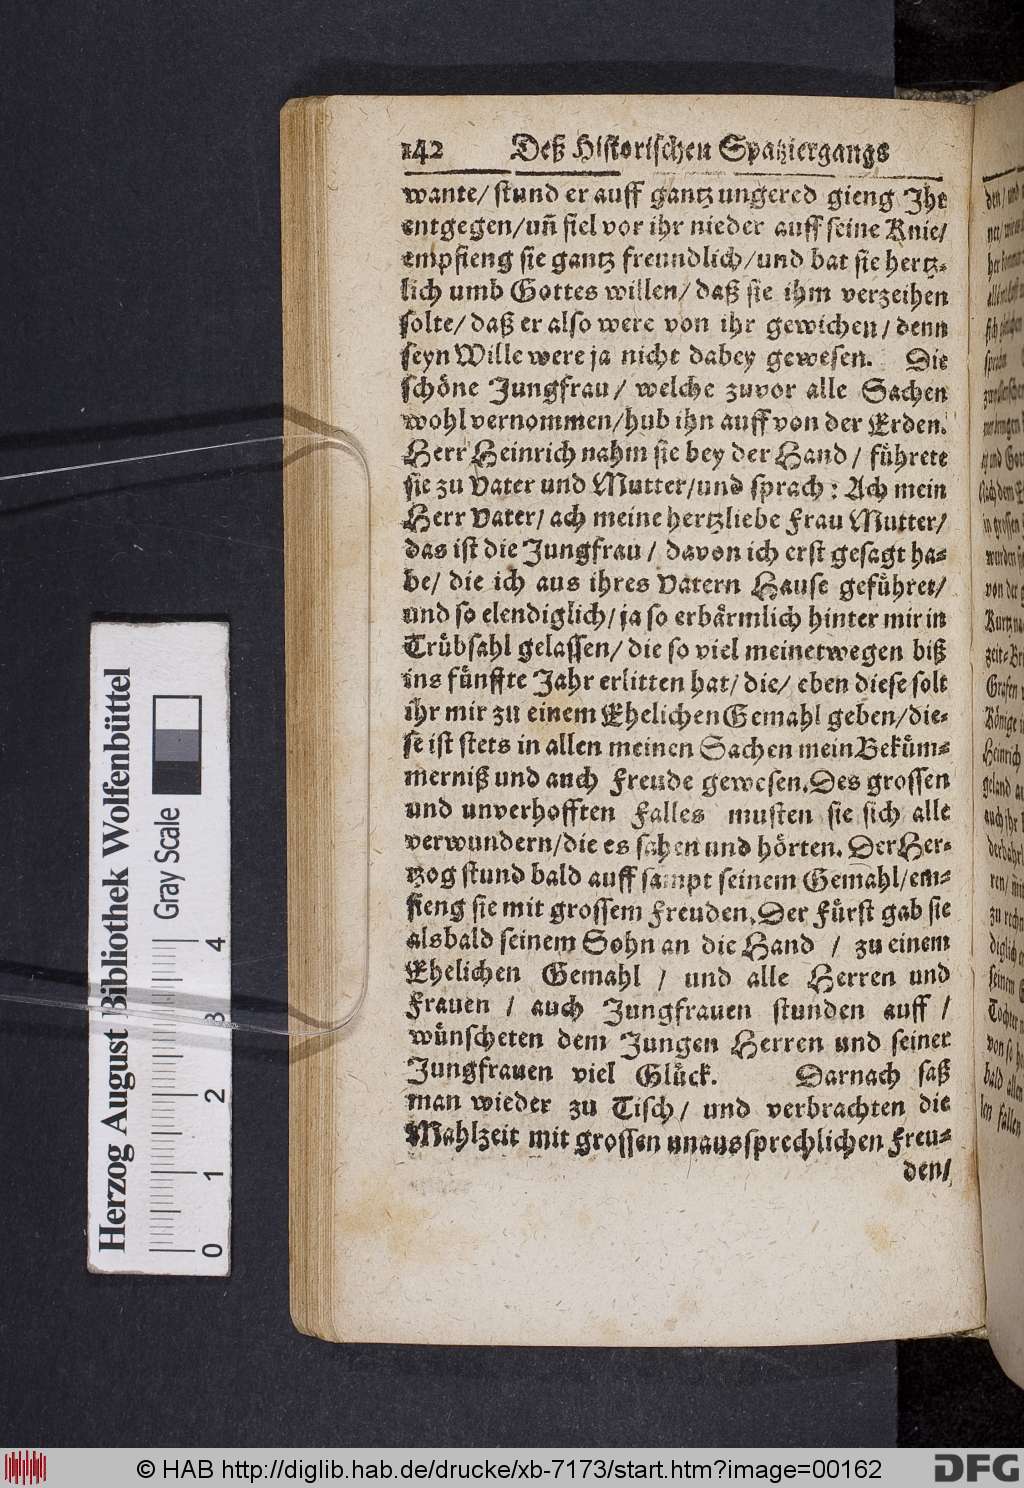 142 Deß Historischen Spatziergangs
wante/ stund er auff gantz ungered gieng Ihr
entgegen/ uñ fiel vor ihr nieder auff seine Knie/
empfieng sie gantz freundlich/ und bat sie hertz-
lich umb Gottes willen/ daß sie ihm verzeihen
solte/ daß er also were von ihr gewichen/ denn
seyn Wille were ja nicht dabey gewesen. Die
schöne Jungfrau/ welche zuvor alle Sachen
wohl vernommen/ hub ihn auff von der Erden.
Herr Heinrich nahm sie bey der Hand/ führete
sie zu Vater und Mutter/ und sprach: Ach mein
Herr Vater/ ach meine hertzliebe Frau Mutter/
das ist die Jungfrau/ davon ich erst gesagt ha-
be/ die ich aus ihres Vatern Hause geführet/
und so elendiglich/ ja so erbärmlich hinter mir in
Trübsahl gelassen/ die so viel meinetwegen biß
ins fünffte Jahr erlitten hat/ die/ eben diese solt
ihr mir zu einem Ehelichen Gemahl geben/ die-
se ist stets in allen meinen Sachen mein Beküm-
merniß und auch Freude gewesen. Des grossen
und unverhofften Falles musten sie sich alle
verwundern/ die es sahen und hörten. Der Her-
tzog stund bald auff sampt seinem Gemahl/ em-
fieng sie mit grossem Freuden. Der Fürst gab sie
alsbald seinem Sohn an die Hand / zu einem
Ehelichen Gemahl / und alle Herren und
Frauen / auch Jungfrauen stunden auff /
wünscheten dem Jungen Herren und seiner
Jungfrauen viel Glück. Darnach saß
man wieder zu Tisch/ und verbrachten die
Mahlzeit mit grossen unaussprechlichen Freu-
den/
Herzog August Bibliothek Wolfenbüttel
Gray Scale
0 1 2 3 4
© HAB http://diglib.hab.de/drucke/xb-7173/start.htm?image=00162
DFG